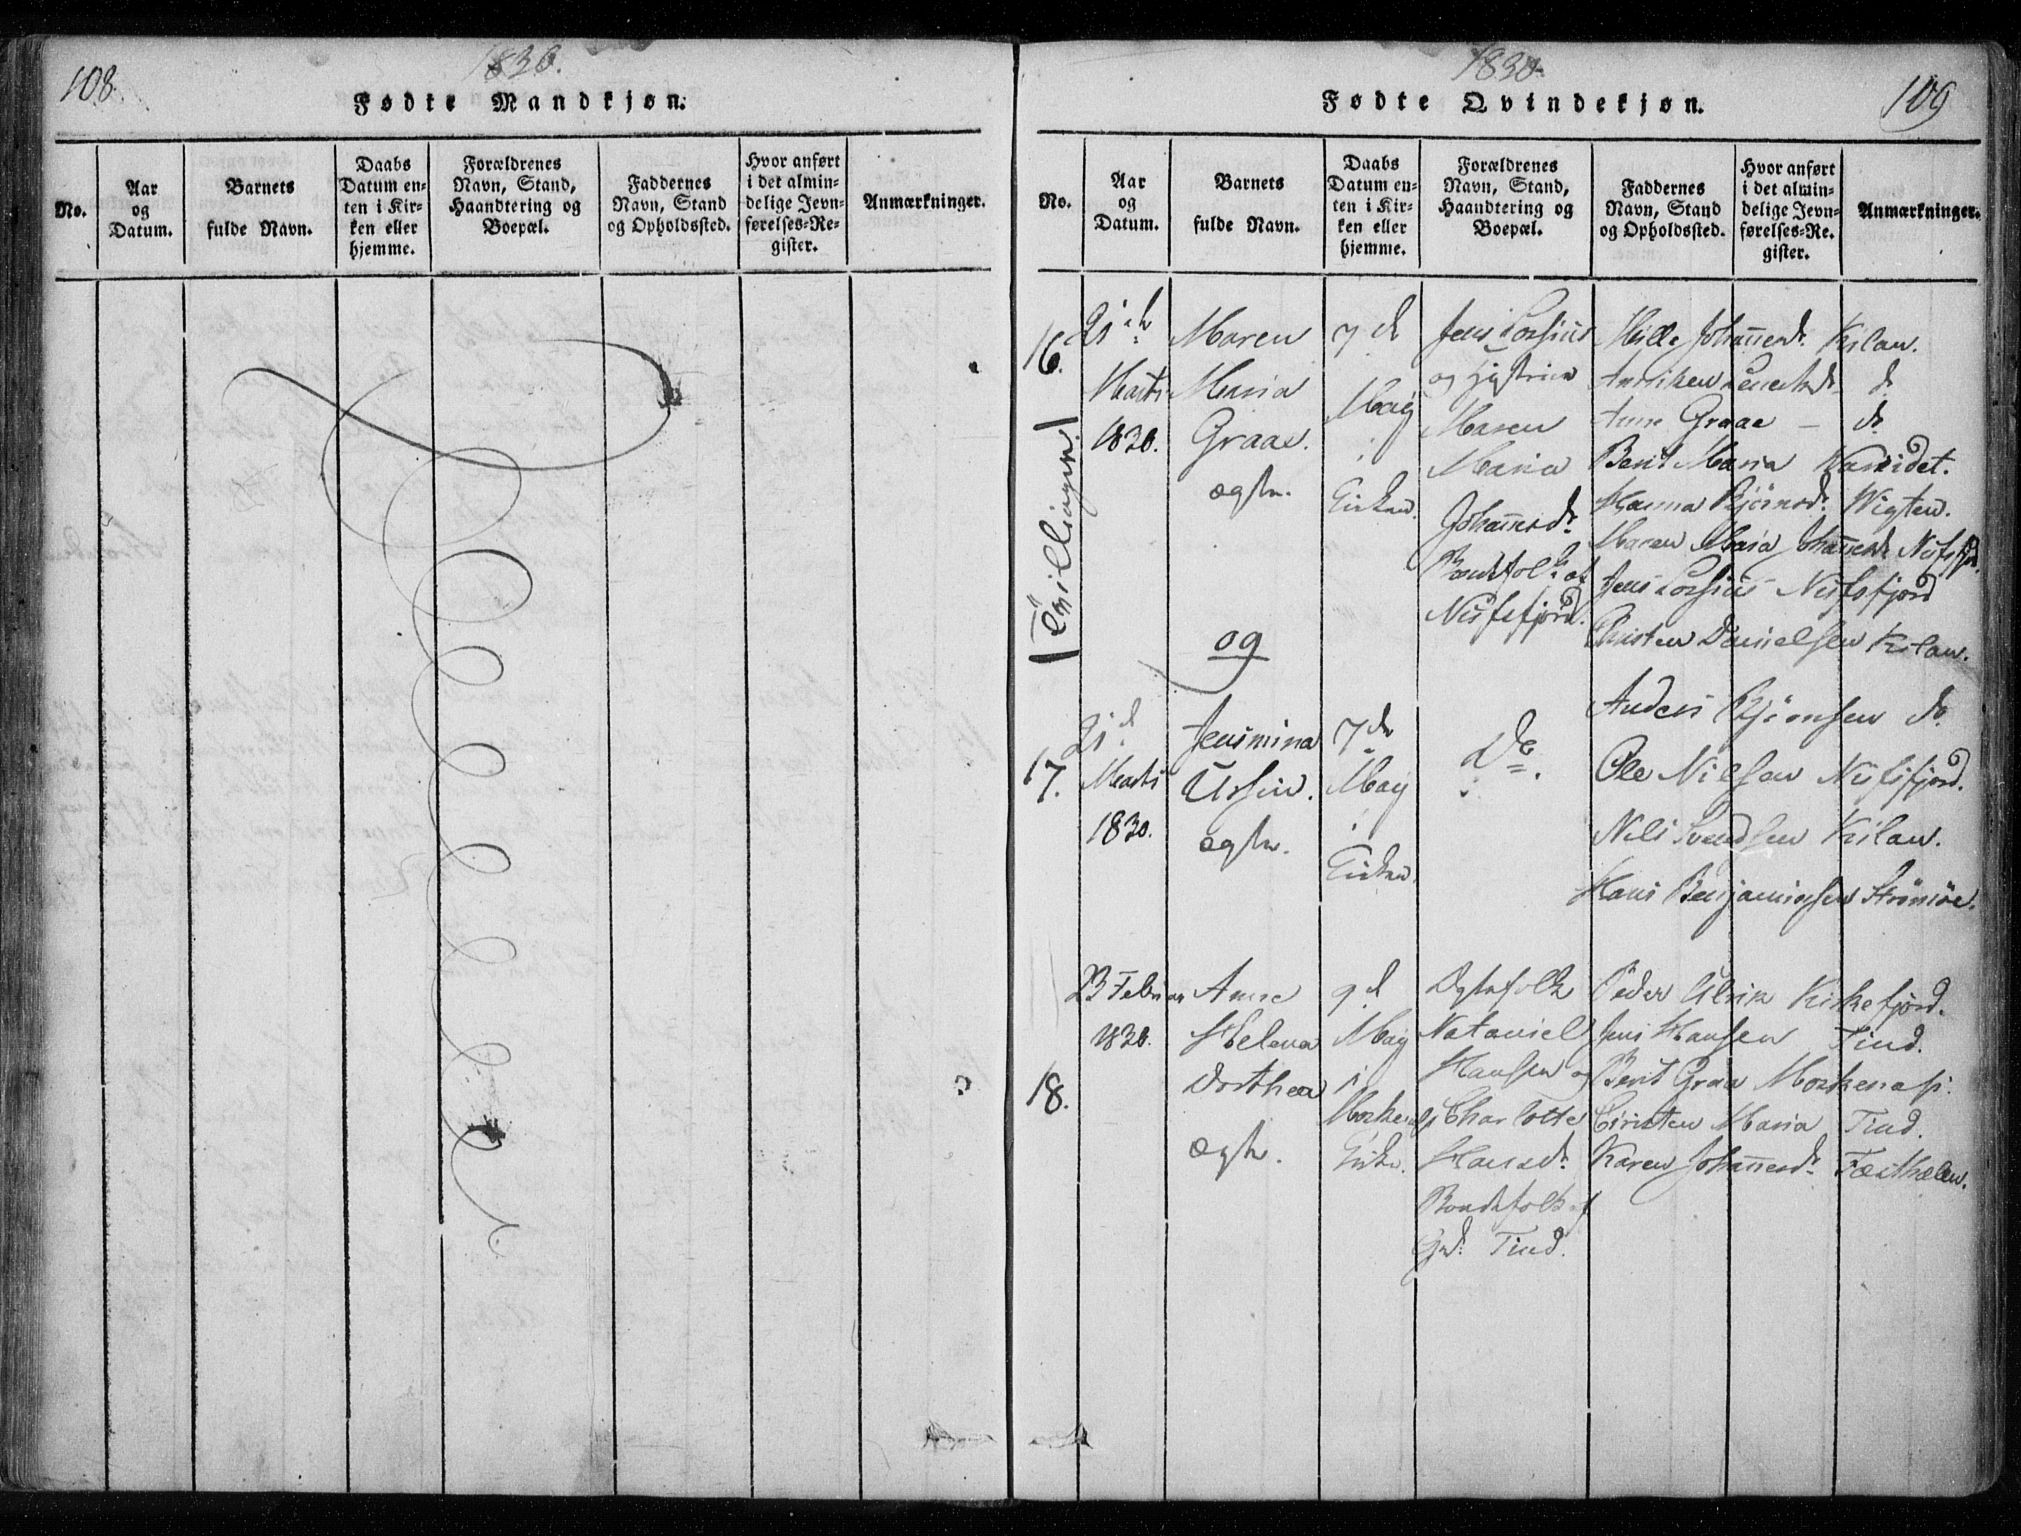 108.
1830.
Fødte Mandkjøn.
No.
Aar og Datum.
Barnets fulde Navn.
Daabs Datum enten i Kirken eller hjemme.
Forældrenes Navn, Stand, Haandtering og Boepæl.
Faddernes Navn, Stand og Opholdssted.
Hvor anført i det almindelige Jevnførelses-Register.
Anmærkninger.
1830.
109
Fødte Qvindekjøn.
No.
Aar og Datum.
Barnets fulde Navn.
Daabs Datum enten i Kirken eller hjemme.
Forældrenes Navn, Stand, Haandtering og Boepæl.
Faddernes Navn, Stand og Opholdssted.
Hvor anført i det almindelige Jevnførelses-Register.
Anmærkninger.
Tvillinger
16.
21
Marti
1830.
Maren
Maria
Graae.
ægte.
og
7 d
Maij
i
Kirken.
Jens
og Hustrue
Maren
Maria
Johannesdr
Bondefolk af
Nusfsfjord.
Hille Johannesdr. Kilan.
Anniken d
Anne Graae — do
Berit Maria
Hanna Bjørnsdr. Wigten.
Maren Maria Johannesdr Nusfsfjd.
Jens Nusfsfjord
Christen Danielsen Kilan.
17.
21 d
Marti
1830.
Jensmina
Ursin.
ægte.
7 d
Maij
i
Kirken.
Do
Anders Bjørnsen do
Ole Nilsen Nusfsfjord.
Nils Svendsen Kilan.
Hans Benjaminsen Strømøe.
18.
23 Februar
1830.
Anne
Helena
Dorthea
ægte.
9 d
Maij
i
Moskenæs
Kirke.
Ægtefolk
Nataniel
Hansen og
Charlotte
Hansdr.
Bondefolk af
Gd. Tind.
Peder Ulrik Kirkefjord.
Jens Hansen Tind.
Berit Graa Moskenæs.
Cirsten Maria Tind.
Karen Johannesdr.